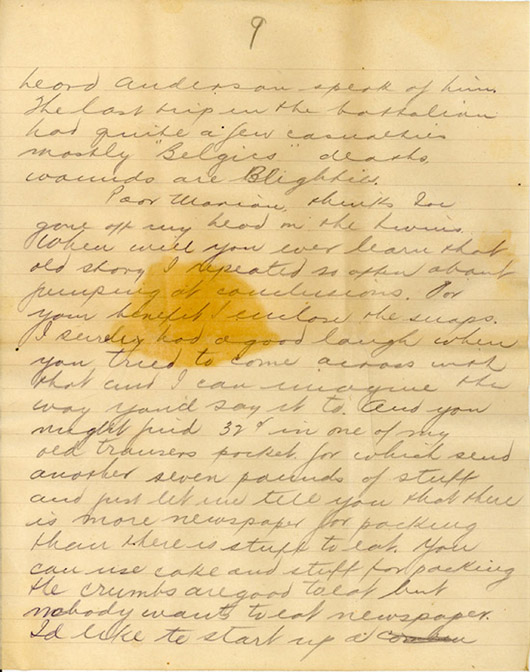 9
heard Anderson speak of him.
The last trip in the battalion
had quite a few casualties
mostly "Belgics" deaths.
wounds are Blighties.
Poor Marion, thinks I've
gone off my head on the twins.
When will you ever learn that
old story I repeated so often about
jumping at conclusions. For
your benefit I enclose the snaps.
I surely had a good laugh when
you tried to come across with
that and I can imagine the
way you'd say it to. And you
might find 32¢ in one of my
old trousers pocket for which send
another seven pounds of stuff
and just let me tell you that there
is more newspaper for packing
than there is stuff to eat. You
can use cake and stuff for packing
the crumbs are good to eat but
nobody wants to eat newspaper.
I'd like to start up a